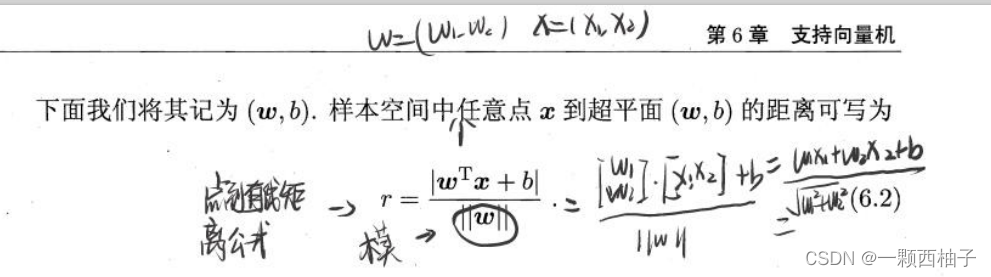 W=(W₁ W₂) X=(X₁, X₂)
第 6 章 支持向量机
下面我们将其记为 (w, b). 样本空间中任意点 x 到超平面 (w, b) 的距离可写为
个
点到直线距离公式 → r = |wᵀx + b| / ||w|| . = [W₁ W₂]·[X₁ X₂] + b / ||w|| = w₁x₁+w₂x₂+b / √w₁²+w₂² (6.2)
模 →
CSDN @一颗西柚子